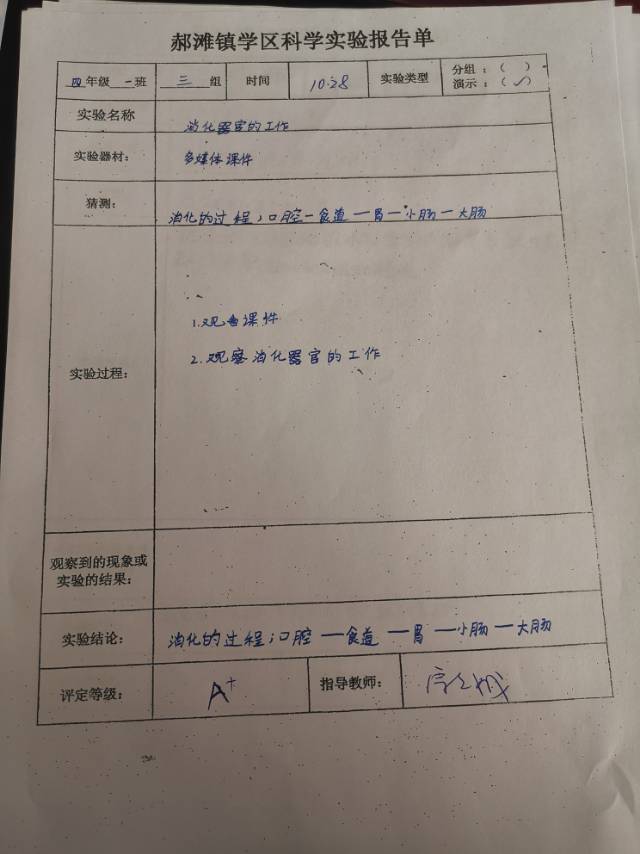 郝滩镇学区科学实验报告单
四年级一班 三组 时间 10.28 实验类型 分组:( )
演示:(✓)
实验名称 消化器官的工作
实验器材: 多媒体课件
猜测: 消化的过程:口腔—食道—胃—小肠—大肠
实验过程:
1.观看课件
2.观察消化器官的工作
观察到的现象或
实验的结果:
实验结论: 消化的过程:口腔—食道—胃—小肠—大肠
评定等级: A+ 指导教师: